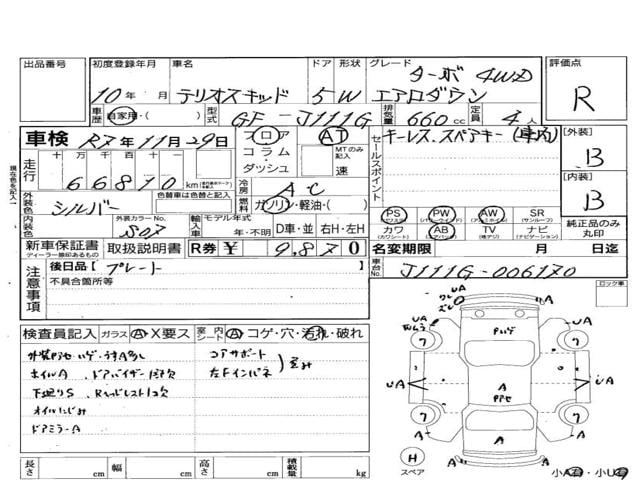 出品番号 初度登録年月 車名 ドア 形状 グレード 評価点
ターボ 4WD
10年 月 テリオスキッド 5 W エアロダウン R
車歴 自家用・( ) 型式 GF-J111G 排気量 660 cc 定員 4人
車検 R7年11月29日 フロア AT キーレス、スペアキー(車内) [外装] B
走行 十 万 千 百 十 一 コラム・ダッシュ MTのみ記入 速 セールスポイント
66810 km 冷房 AC [内装] B
外装色 シルバー 色替車は色替と記入 燃料 ガソリン・軽油・( )
PS PW AW SR (サンルーフ)
内装色 外装カラーNo. S07 輸入車 モデル年式 年・不明 D車・並 右H・左H
カワ (カワシート) AB (エアバック) TV (地デジ) ナビ (ナビゲーション) 純正品のみ丸印
新車保証書 ディーラー捺印あるもの 取扱説明書 R券 ¥ 9,870 名変期限 月 日迄
注意事項 後日品【 プレート 】 車台No. J111G-006170
不具合箇所等 ロック車
検査員記入 ガラス A・X要ス 室内シート A・コゲ・穴・汚れ・破れ
コアサポート
ホイルA 、ドアバイザー 左Fインパネ
下廻りS
オイルにじみ
ドアミラーA
UA A UA
A
A A
H スペア
小A 小U
長さ cm 幅 cm 高さ cm 積載量 kg
現在色を記入